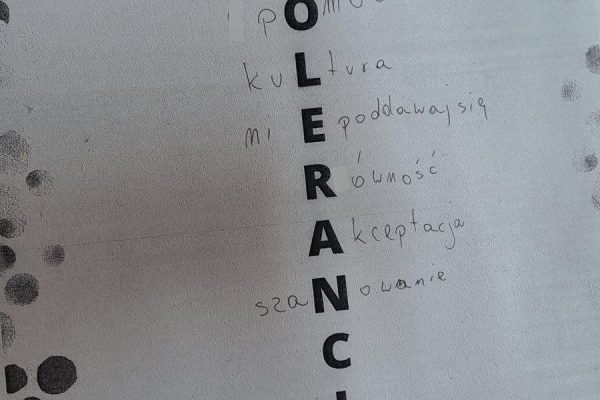 pOmoc
kuLtura
niE poddawaj się
Równość
Akceptacja
szaNowanie
C